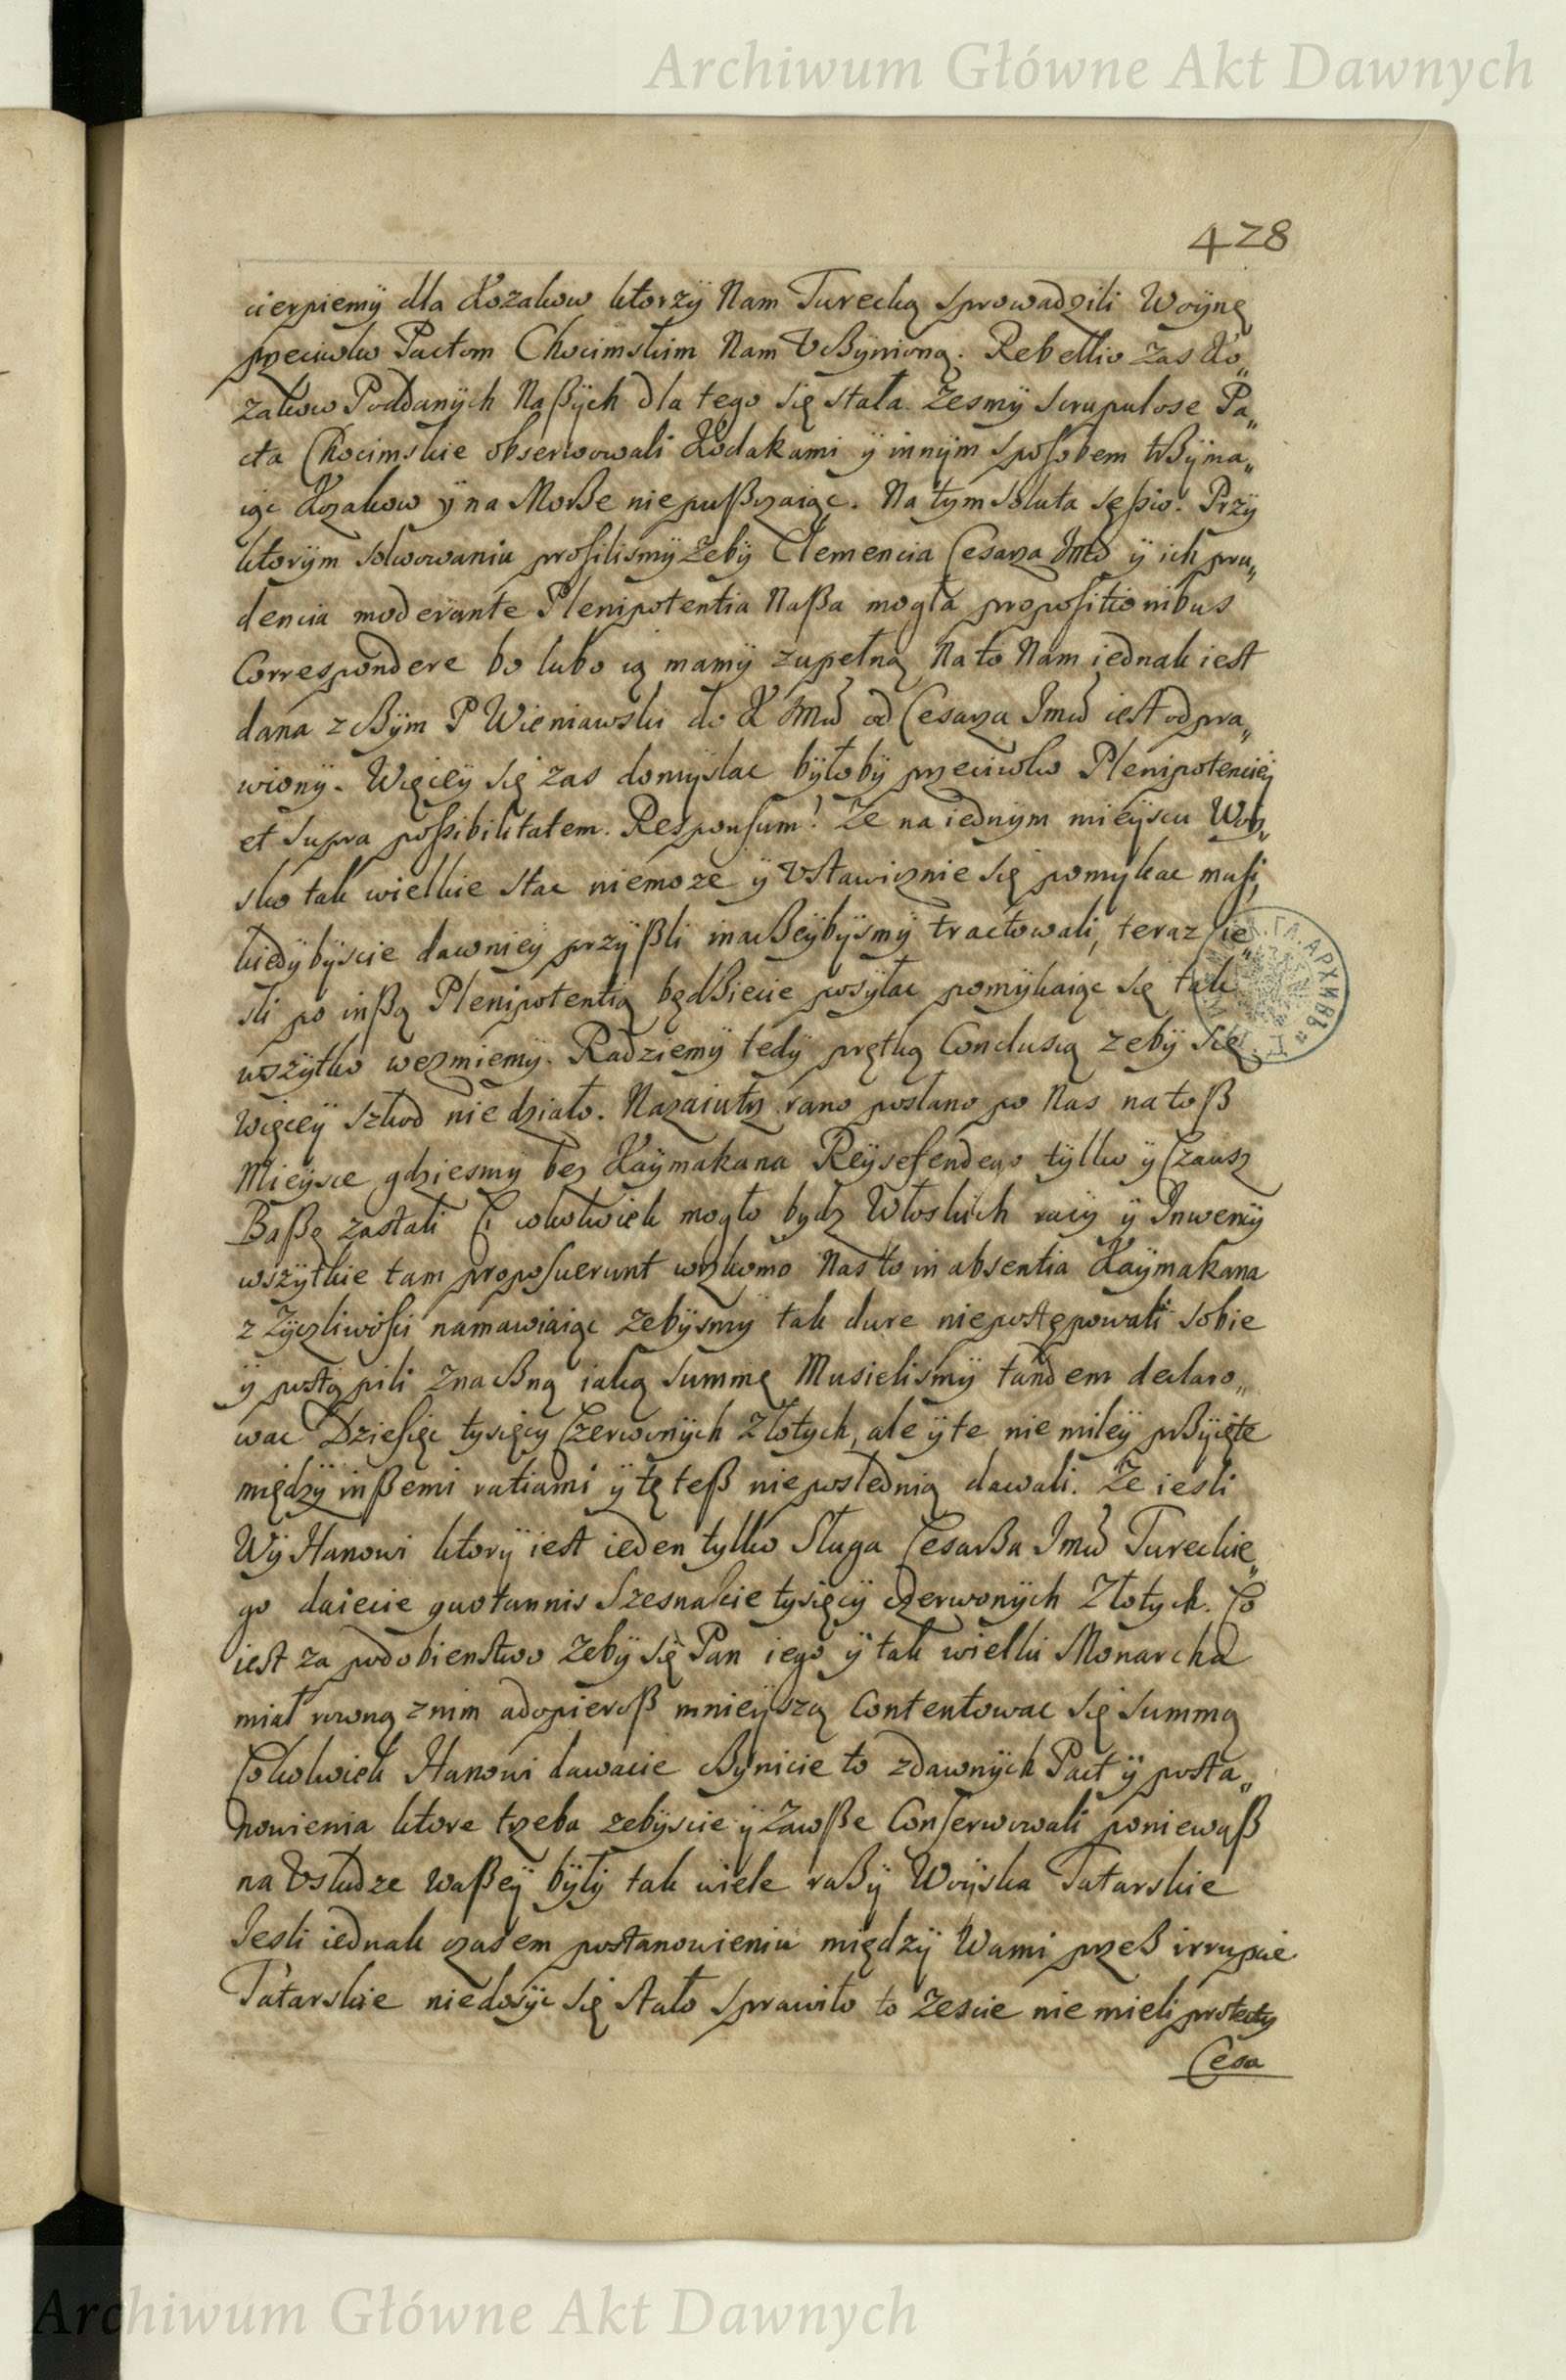 Archiwum Główne Akt Dawnych
428
cierpiemÿ dla Kozakow ktorzÿ Nam Turecką sprowadzili Woÿnę
przeciwko Pactom Chocimskim Nam Vßÿnioną. Rebellio zas Ko„
zakow Poddanÿch Naßÿch dla tego się stała. Zesmÿ scrupulose Pa„
cta Chocimskie obserwowali Kodakami ÿ innÿm sposobem trßÿma„
iąc Kozakow ÿ na Morße nie pußczaiąc. Na tym soluta sessio. Przÿ
ktorÿm solwowaniu prosilismÿ zebÿ Clemencia Cesarza Jmći ÿ ich pru„
dencia moderante Plenipotentia Naßa mogła propositionibus
Correspondere bo lubo ią mamÿ zupełną Na to Nam iednak iest
dana z ßÿm P Wieniawski do K Jmći od Cesarza Jmći iest odpra„
wionÿ. Więceÿ się zas domÿslac bÿłobÿ przeciwko Plenipotencieÿ
et supra possibilitatem. Responsum! Ze na iednÿm mieÿscu Woÿ„
sko tak wielkie stac niemoze ÿ Vstawicznie się pomÿkac musi,
kiedÿbÿscie dawnieÿ przÿßli inacßeÿbÿsmÿ tractowali, teraz ie„
sli po inßą Plenipotentią będßiecie posÿłac pomÿkaiąc się tak
wszÿtko wezmiemÿ. Radziemÿ tedÿ prętką Conclusią zebÿ się
Więceÿ szkod nie działo. Nazaiutrz rano posłano po Nas na toß
Mieÿsce gdziesmÿ bez Kaÿmakana Reÿsefendego tÿlko ÿ Czausz
Baßę zastali Cokolwiek mogło bydz Włoskich racÿ ÿ Inwencÿ
wszÿtkie tam proposuerunt wrzkomo Nas to in absentia Kaÿmakana
z Zÿczliwości namawiaiąc zebÿsmÿ tak dure niepostępowali sobie
ÿ postąpili znacßną iaką summę Musielismÿ tandem declaro„
wac Dziesięc tysięcy Czerwonÿch Złotych, ale ÿ te nie mileÿ prßÿięte
międzÿ inßemi ratiami ÿ tę teß nieposlednią dawali. Ze iesli
Wÿ Hanowi ktorÿ iest ieden tylko Sługa Cesarßa Jmći Tureckie„
go daiecie quotannis Szesnascie tysięcÿ czerwonÿch Złotych. Co
iest za podobienstwo zebÿ się Pan iego ÿ tak wielki Monarcha
miał rowną znim adopieroß mnieÿszą Contentowac się summą
Cokolwiek Hanowi dawacie cßÿnicie to zdawnÿch Pact ÿ posta„
nowienia ktore trzeba zebÿscie ÿ Zawße Conserwowali poniewaß
na Vsłudze waßeÿ bÿłÿ tak wiele raßÿ Woÿska Tatarskie
Jesli iednak czasem postanowieniu międzÿ Wami przeß irrupcie
Tatarskie niedosÿc się stało sprawiło to zescie nie mieli protectÿ
Cesa
Archiwum Główne Akt Dawnych